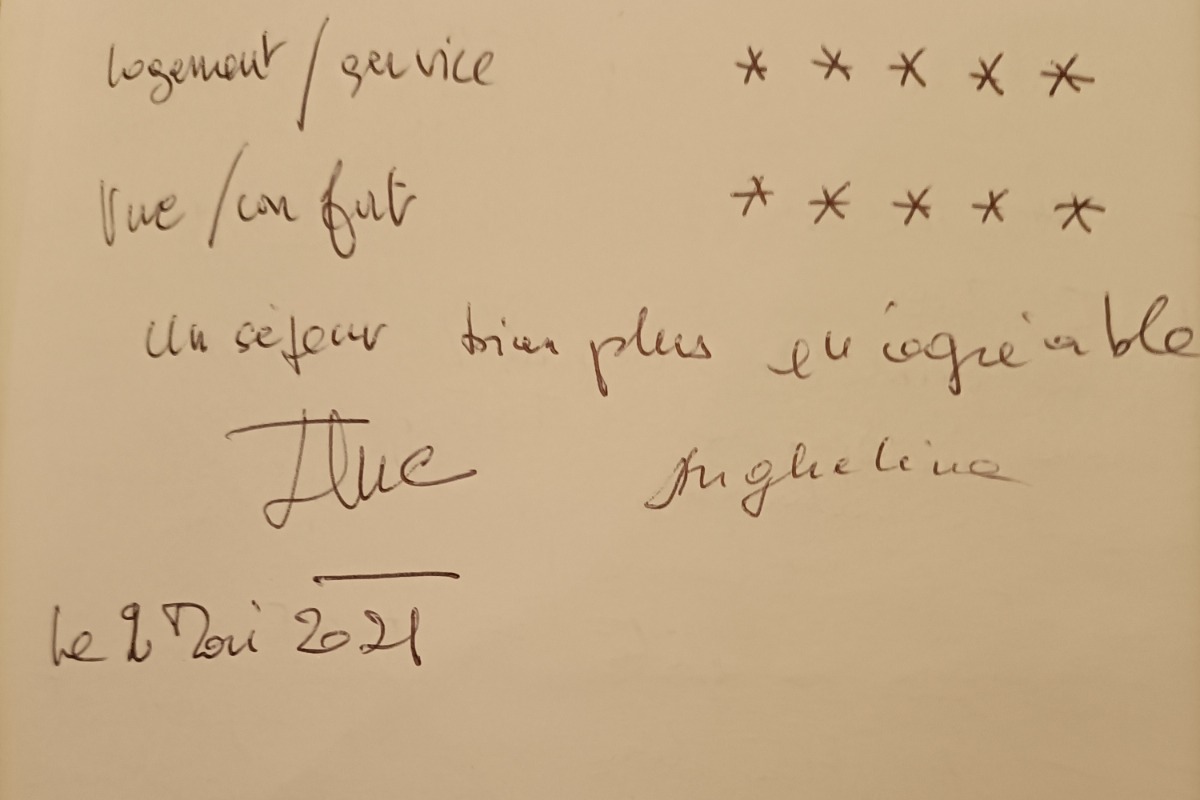 logement / service * * * * *
Vue / confort * * * * *
Un séjour bien plus qu'agréable
Luc Anghelina
Le 2 Mai 2021